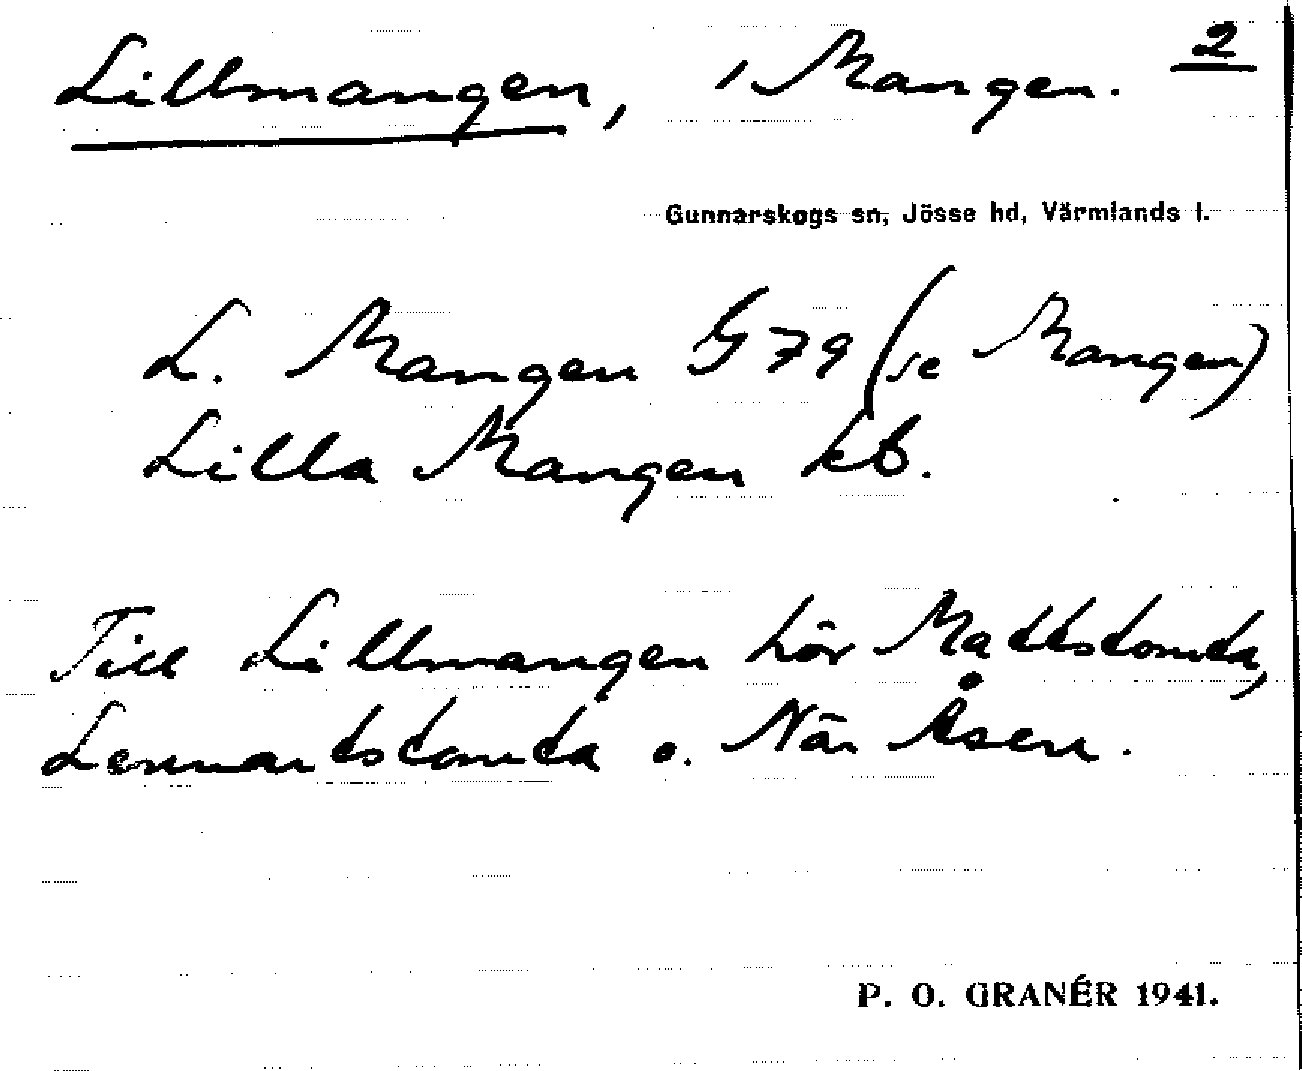 Lillmangen, i Mangen. 2
Gunnarskogs sn, Jösse hd, Värmlands l.
L. Mangen G 79 (se Mangen)
Lilla Mangen kb.
Till Lillmangen hör Mattstomta,
Lennartstomta o. När Åsen.
P. O. GRANÉR 1941.